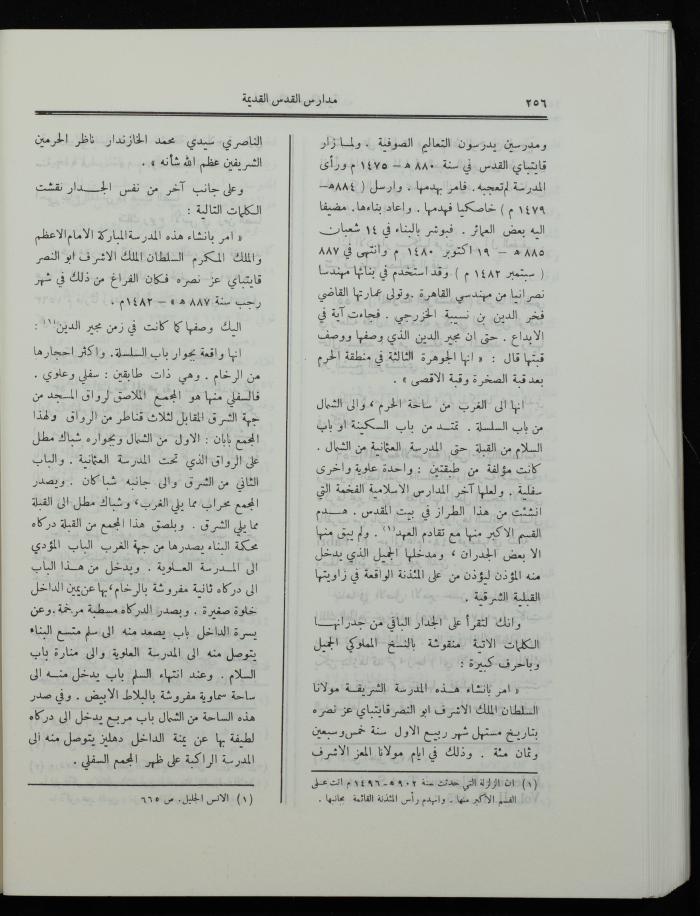 ٢٥٦
مدارس القدس القديمة
ومدرسين يدرسون التعاليم الصوفية . ولما زار
قايتباي القدس في سنة ٨٨٠ هـ – ١٤٧٥ م ورأى
المدرسة لم تعجبه. فامر بهدمها . وارسل ( ٨٨٤هـ–
١٤٧٩ م ) خاصكيا فهدمها . واعاد بناءها. مضيفا
اليه بعض العمائر . فبوشر بالبناء في ١٤ شعبان
٨٨٥ هـ – ١٩ اكتوبر ١٤٨٠ م وانتهى في ٨٨٧
( سبتمبر ١٤٨٢ م ) وقد استخدم في بنائها مهندسا
نصرانيا من مهندسي القاهرة . وتولى عمارتها القاضي
فخر الدين بن نسيبة الخزرجي . فجاءت آية في
الابداع . حتى ان مجير الدين الذي وصفها ووصف
قبتها قال : « انها الجوهرة الثالثة في منطقة الحرم
بعد قبة الصخرة وقبة الاقصى » .
انها الى الغرب من ساحة الحرم ، والى الشمال
من باب السلسلة . تمتد من باب السكينة او باب
السلام من القبلة حتى المدرسة العثمانية من الشمال .
كانت مؤلفة من طبقتين : واحدة علوية واخرى
سفلية . ولعلها آخر المدارس الاسلامية الفخمة التي
انشئت من هذا الطراز في بيت المقدس . هــدم
القسم الاكبر منها مع تقادم العهد(١) . ولم يبق منها
الا بعض الجدران ، ومدخلها الجميل الذي يدخل
منه المؤذن ليؤذن من على المئذنة الواقعة في زاويتها
القبلية الشرقية .
وانك لتقرأ على الجدار الباقي من جدرانهــا
الكلمات الاتية منقوشة بالنسخ المملوكي الجميل
وباحرف كبيرة :
« امر بانشاء هــذه المدرسة الشريفــة مولانا
السلطان الملك الاشرف ابو النصر قايتباي عز نصره
بتاريخ مستهل شهر ربيع الاول سنة خمس وسبعين
وثمان مئة . وذلك في ايام مولانا المعز الاشرف
(١) ان الزلزلة التي حدثت سنة ٩٠٢ هـ – ١٤٩٦ م اتت عــلى
القسم الاكبر منها . وانهدم رأس المئذنة القائمة بجانبها .
الناصري سيدي محمد الخازندار ناظر الحرمين
الشريفين عظم الله شأنه » .
وعلى جانب آخر من نفس الجــدار نقشت
الكلمات التالية :
« امر بانشاء هذه المدرسة المباركة الامام الاعظم
والملك المكرم السلطان الملك الاشرف ابو النصر
قايتباي عز نصره فكان الفراغ من ذلك في شهر
رجب سنة ٨٨٧ هـ » – ١٤٨٢م .
اليك وصفها كما كانت في زمن مجير الدين(١) :
انها واقعة بجوار باب السلسلة. واكثر احجارها
من الرخام . وهي ذات طابقين : سفلي وعلوي .
فالسفلي منها هو المجمع الملاصق لرواق المسجد من
جهة الشرق المقابل لثلاث قناطر من الرواق ولهذا
المجمع بابان : الاول من الشمال وبجواره شباك مطل
على الرواق الذي تحت المدرسة العثمانية . والباب
الثاني من الشرق والى جانبه شباكان . ويصدر
المجمع محراب مما يلي الغرب ، وشباك مطل الى القبلة
مما يلي الشرق . ويلصق هذا المجمع من القبلة دركاه
محكمة البناء يصدرها من جهة الغرب الباب المؤدي
الى المــدرسة العــلوية . ويدخل من هــذا الباب
الى دركاه ثانية مفروشة بالرخام، بها عن يمين الداخل
خلوة صغيرة . ويصدر الدركاه مسطبة مرخمة. وعن
يسرة الداخل باب يصعد منه الى سلم متسع البناء
يتوصل منه الى المدرسة العلوية والى منارة باب
السلام . وعند انتهاء السلم باب يدخل منــه الى
ساحة سماوية مفروشة بالبلاط الابيض . وفي صدر
هذه الساحة من الشمال باب مربع يدخل الى دركاه
لطيفة بها عن يمنة الداخل دهليز يتوصل منه الى
المدرسة الراكبة على ظهر المجمع السفلي .
(١) الانس الجليل . ص ٦٦٥